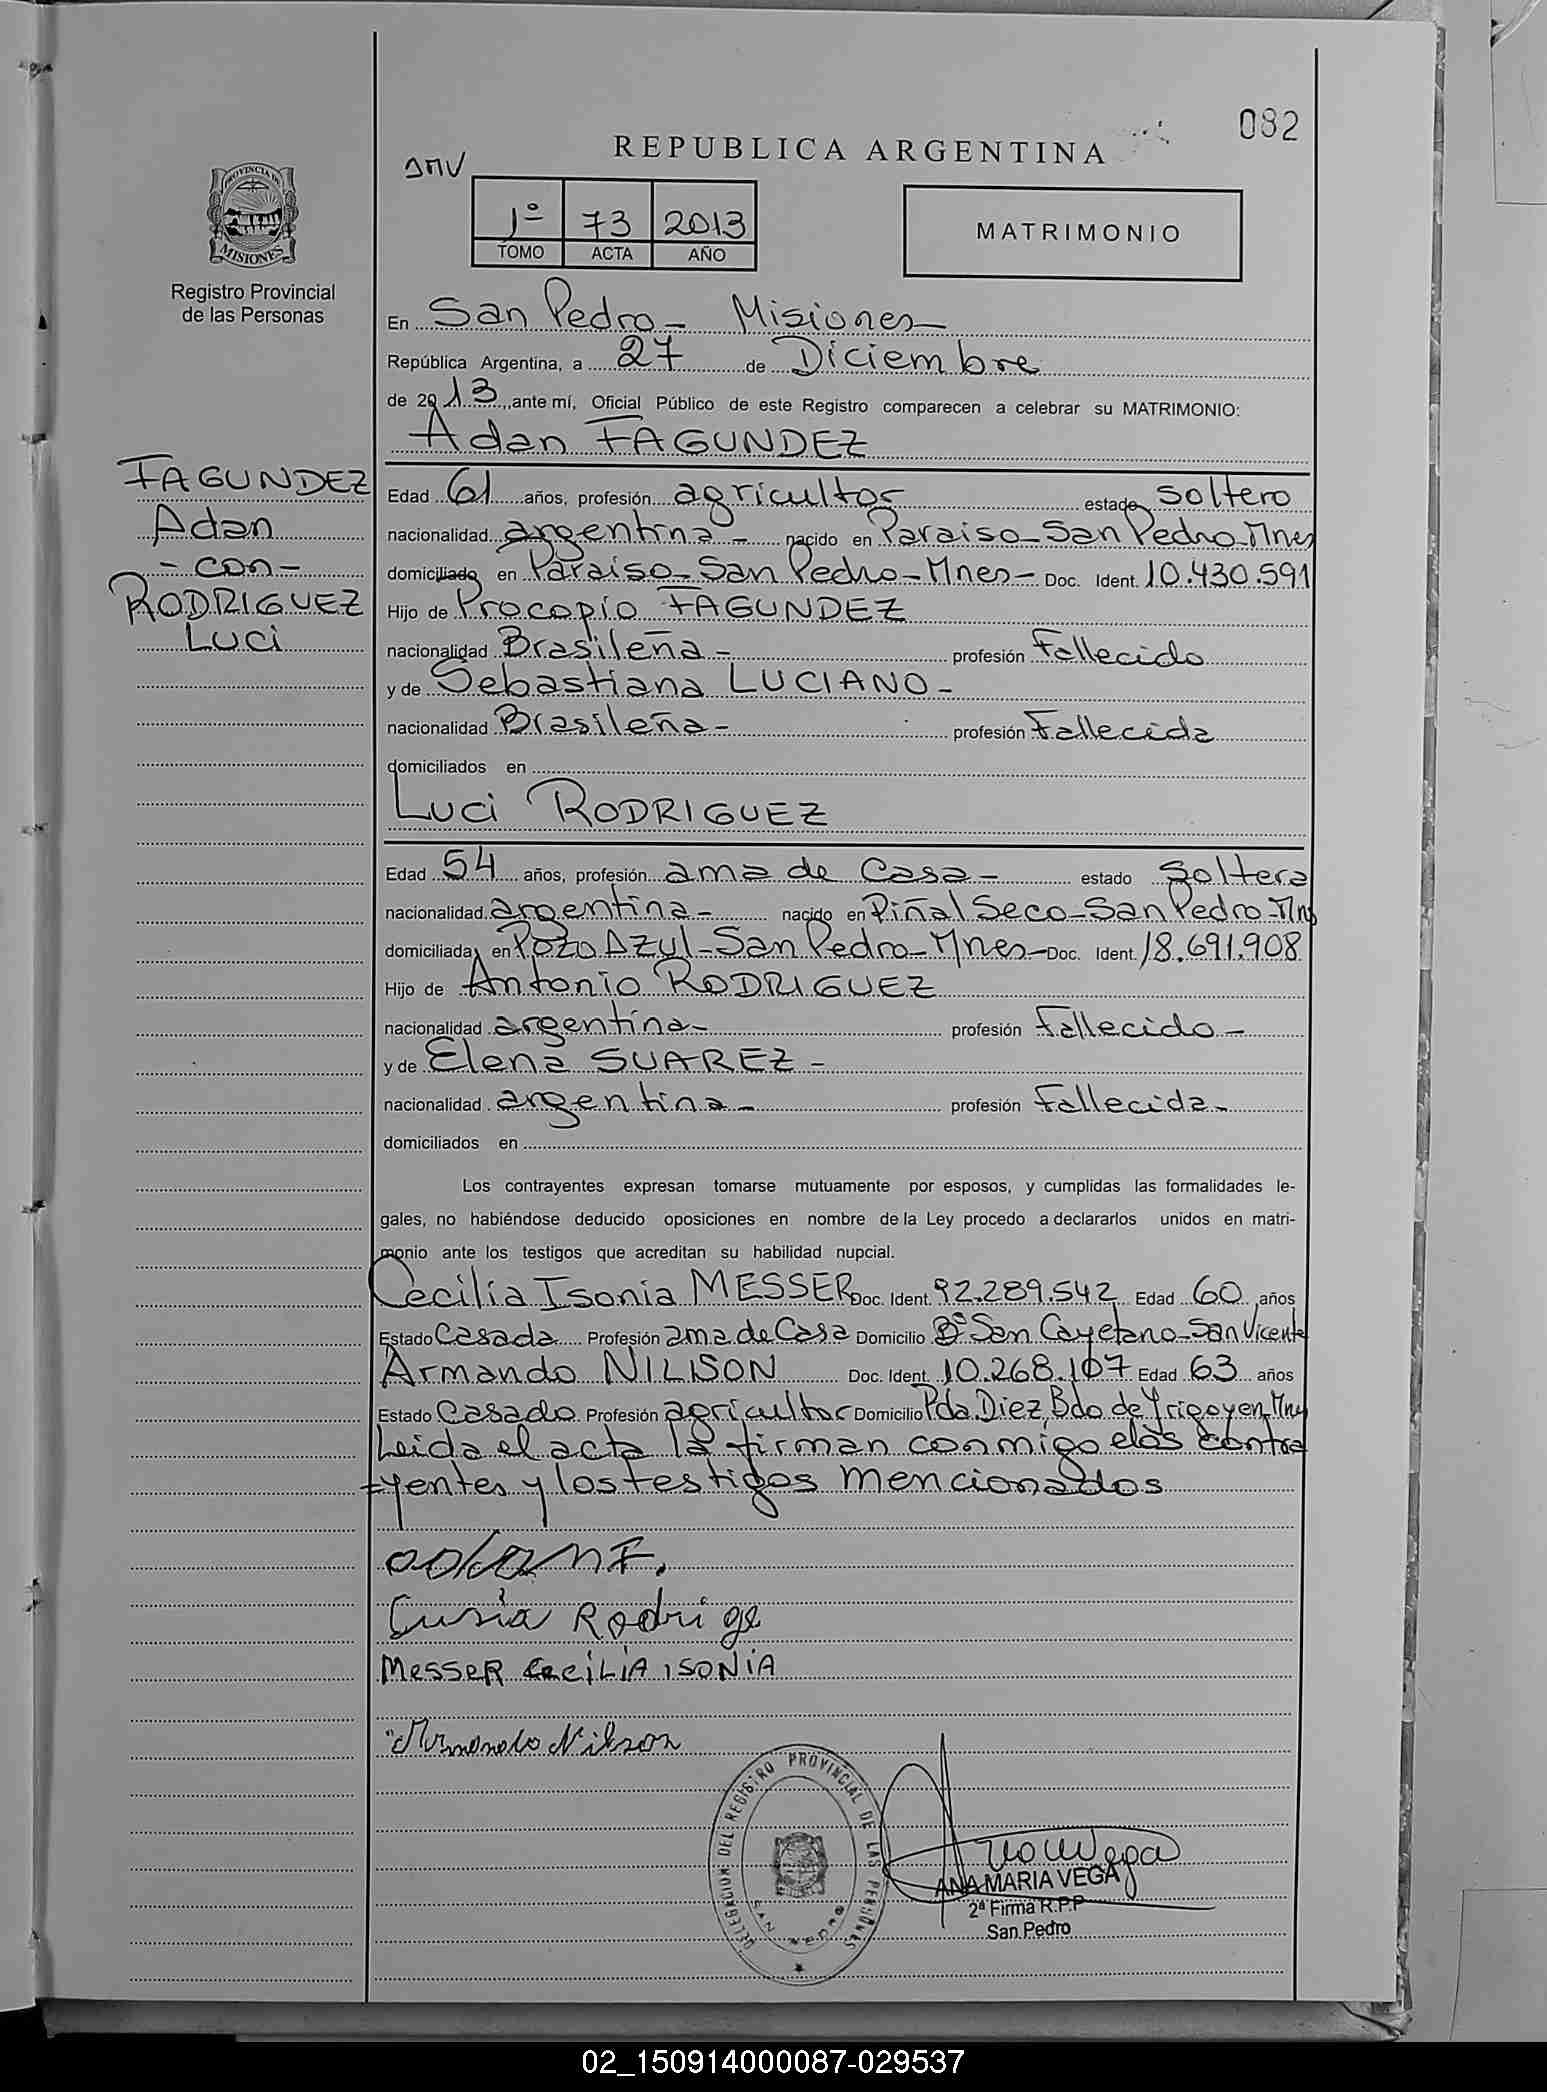 082
REPUBLICA ARGENTINA
JMV
PROVINCIA DE
MISIONES
Registro Provincial
de las Personas
1º 73 2013
TOMO ACTA AÑO
MATRIMONIO
En San Pedro - Misiones
República Argentina, a 27 de Diciembre
de 2013, ante mí, Oficial Público de este Registro comparecen a celebrar su MATRIMONIO:
Adan FAGUNDEZ
FAGUNDEZ
Adan
- con -
RODRIGUEZ
Luci
Edad 61 años, profesión agricultor estado soltero
nacionalidad argentina - nacido en Paraiso - San Pedro - Mnes
domiciliado en Paraiso - San Pedro - Mnes - Doc. Ident. 10.430.591
Hijo de Procopio FAGUNDEZ
nacionalidad Brasileña - profesión Fallecido
y de Sebastiana LUCIANO -
nacionalidad Brasileña - profesión Fallecida
domiciliados en
Luci RODRIGUEZ
Edad 54 años, profesión ama de Casa - estado Soltera
nacionalidad argentina - nacido en Piñal Seco - San Pedro - Mns
domiciliada en Pozo Azul - San Pedro - Mnes - Doc. Ident. 18.691.908
Hijo de Antonio RODRIGUEZ
nacionalidad argentina - profesión Fallecido -
y de Elena SUAREZ -
nacionalidad argentina - profesión Fallecida -
domiciliados en
Los contrayentes expresan tomarse mutuamente por esposos, y cumplidas las formalidades le-
gales, no habiéndose deducido oposiciones en nombre de la Ley procedo a declararlos unidos en matri-
monio ante los testigos que acreditan su habilidad nupcial.
Cecilia Isonia MESSER Doc. Ident. 92.289.542 Edad 60 años
Estado Casada Profesión ama de Casa Domicilio Bº San Cayetano - San Vicente
Armando NILISON Doc. Ident. 10.268.107 Edad 63 años
Estado Casado Profesión agricultor Domicilio Pda. Diez Bdo de Yrigoyen - Mns
Leida el acta la firman conmigo elos contra
=yentes y los testigos mencionados
adan F.
Lusia Rodrige
MESSER CECILIA ISONIA
Armando Nilson
DELEGACION DEL REGISTRO PROVINCIAL DE LAS PERSONAS
SAN PEDRO
Ana M Vega
ANA MARIA VEGA
2ª Firma R.P.P
San Pedro
02_150914000087-029537